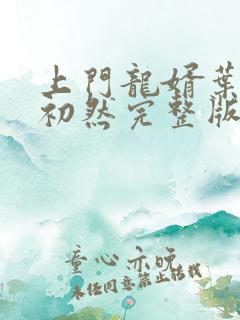 上門龍婿葉
初然完整版
童心亦晚
未经同意禁止转载